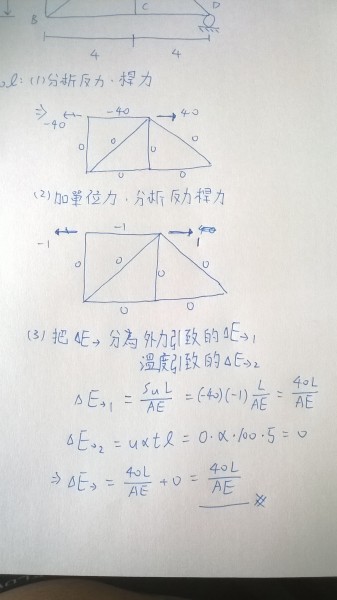 B C D
4 4
ol: (1)分析反力、桿力
⇒ -40 -40 40
0 0 0 0
0 0
(2) 加單位力、分析反力桿力
-1 -1 1
0 0 0 0
0 0
(3) 把 ΔE→ 分為外力引致的ΔE→1
溫度引致的ΔE→2
ΔE→1 = SuL/AE = (-40)(-1) L/AE = 40L/AE
ΔE→2 = uαtl = 0·α·100·5 = 0
⇒ ΔE→ = 40L/AE + 0 = 40L/AE